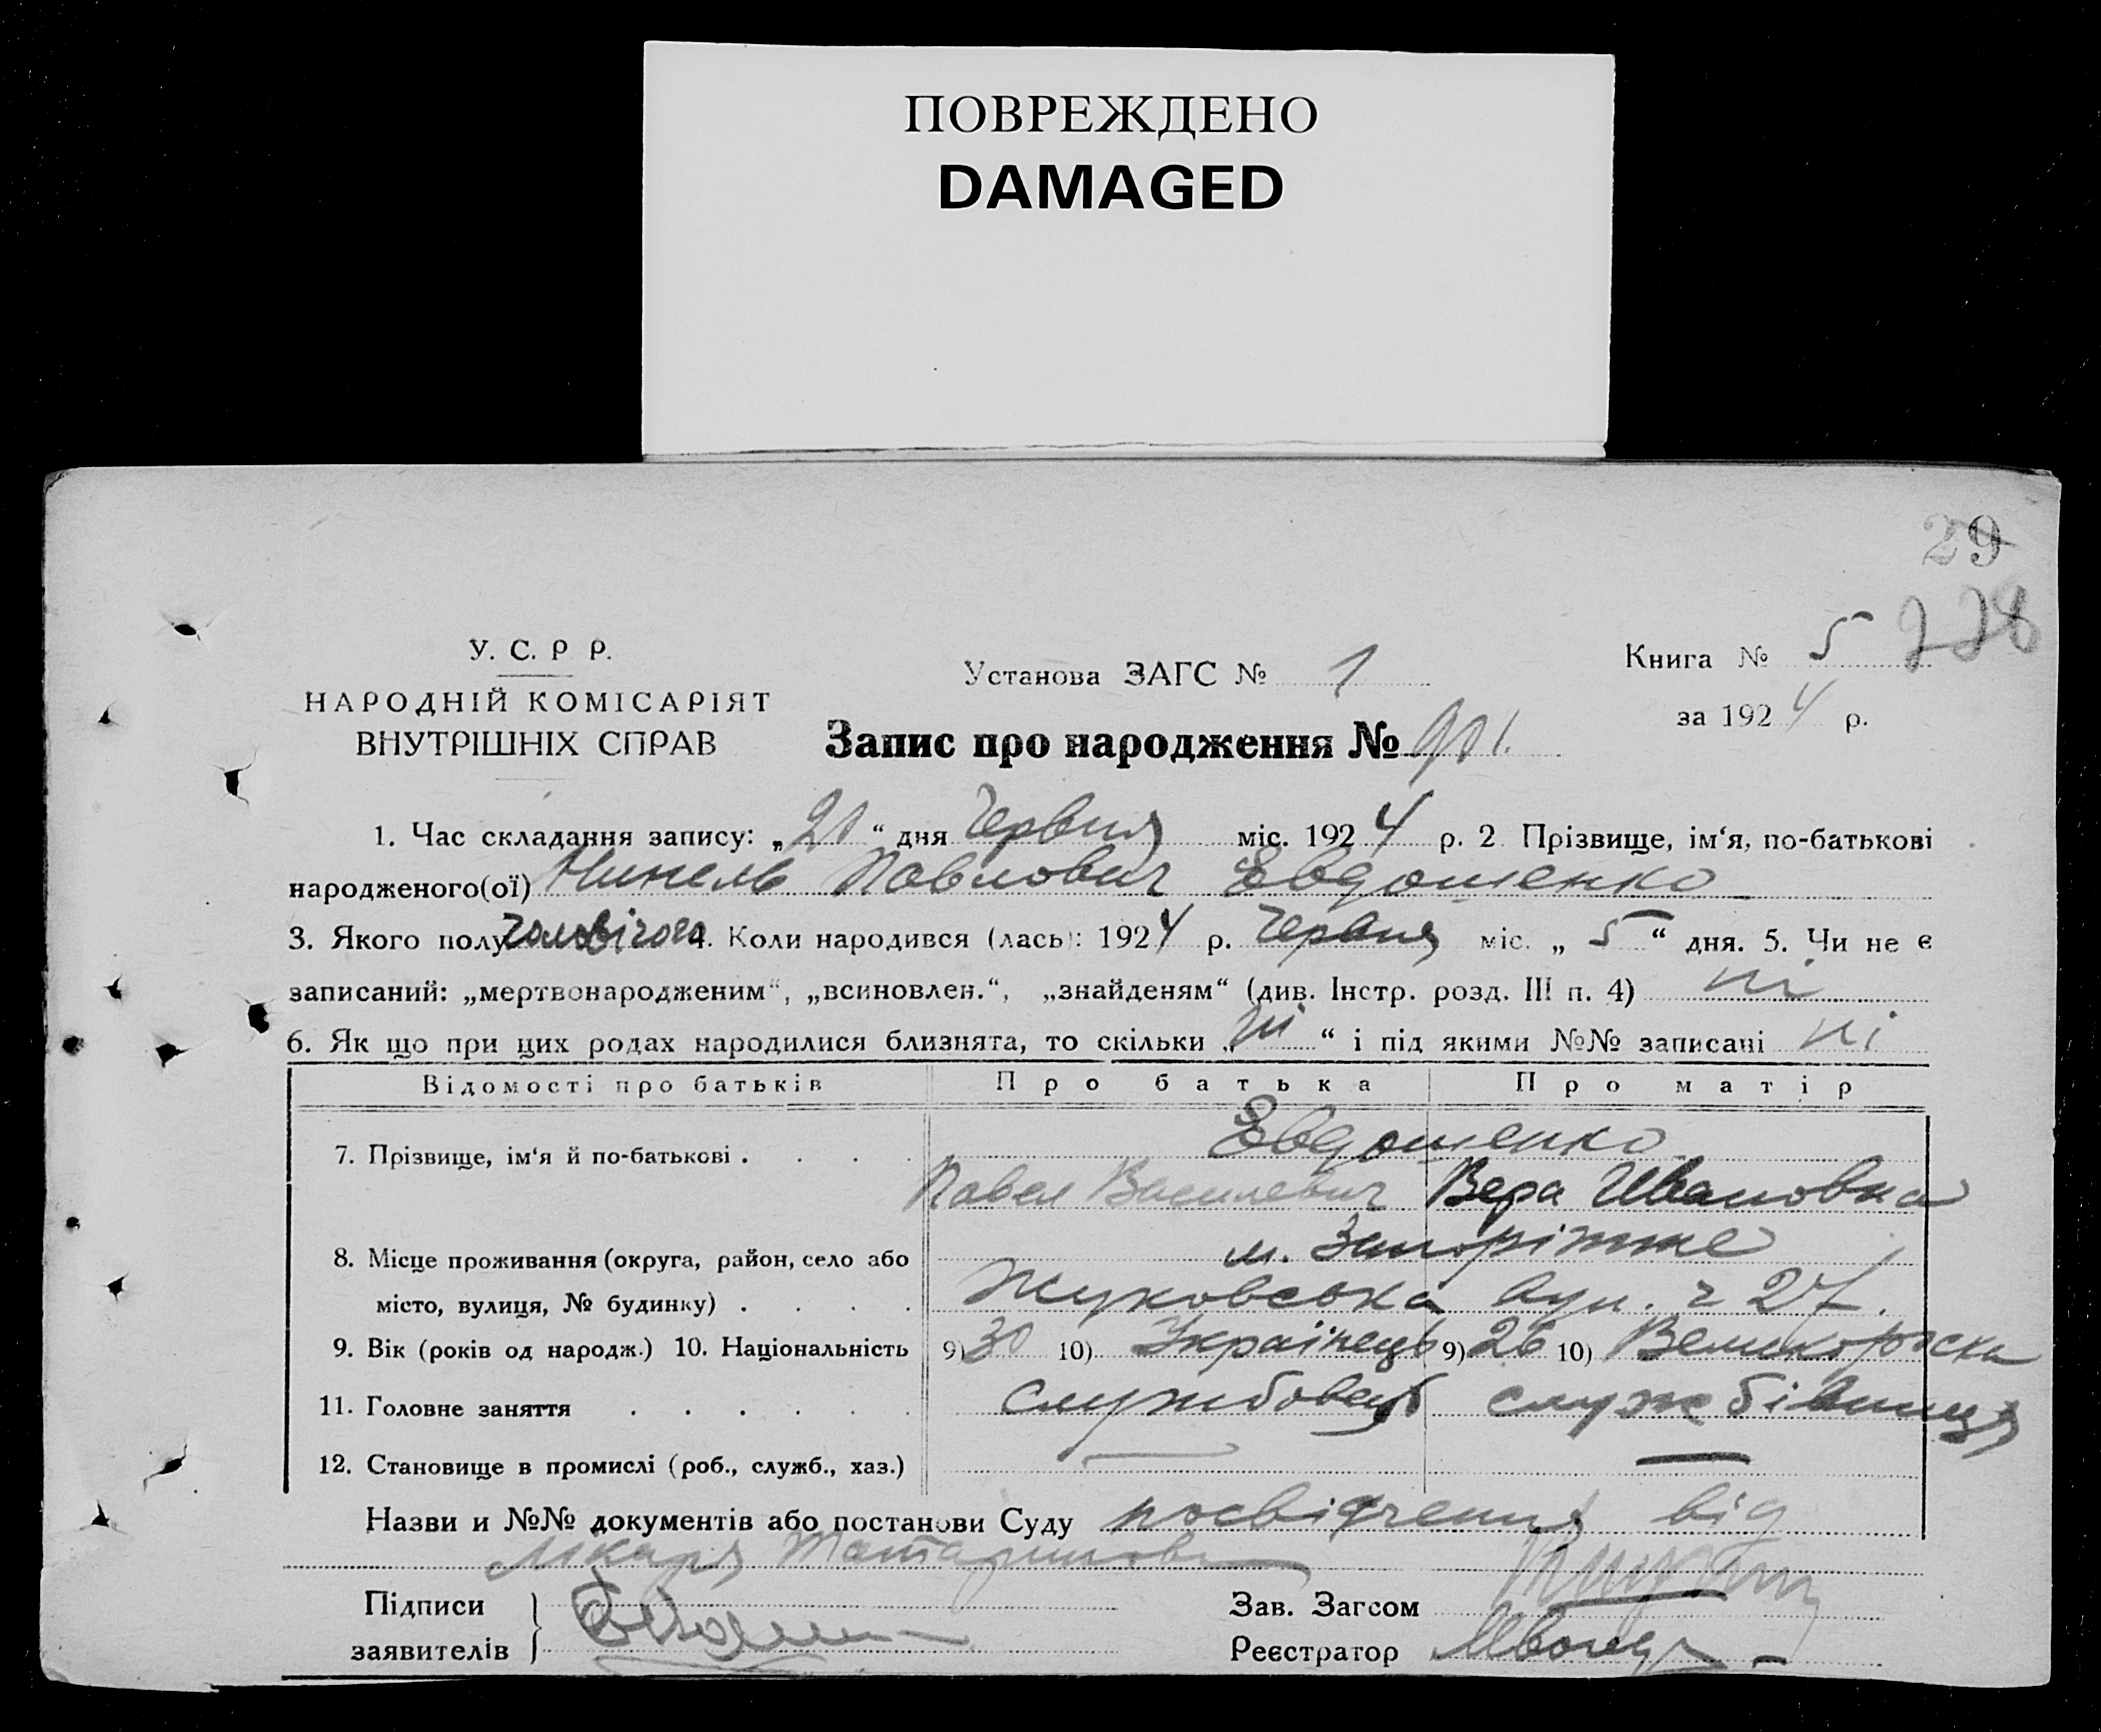 ПОВРЕЖДЕНО
DAMAGED
29
228
У. С. Р Р.
НАРОДНІЙ КОМІСАРІЯТ
ВНУТРІШНІХ СПРАВ
Установа ЗАГС № 1
Книга № 5
за 1924 р.
Запис про народження №
1. Час складання запису: „20“ дня Червня міс. 1924 р. 2 Прізвище, ім‘я, по-батькові
народженого(ої) Нинель Павлович Евдошенко
3. Якого полу чоловічого 4. Коли народився (лась): 1924 р. Червня міс. „5“ дня. 5. Чи не є
записаний: „мертвонародженим“, „всиновлен.“, „знайденям“ (див. Інстр. розд. III п. 4) ні
6. Як що при цих родах народилися близнята, то скільки „ні“ і під якими №№ записані ні
Відомості про батьків Про батька Про матір
7. Прізвище, ім‘я й по-батькові . . . . Евдошенко
Павел Василевич Вера Ивановна
8. Місце проживання (округа, район, село або м. Запоріжже
місто, вулиця, № будинку) . . . . Жуковська вул. ч 27.
9. Вік (років од народж.) 10. Національність 9) 30 10) Українець 9) 26 10) Великоросска
11. Головне заняття . . . . . . службовець службівниця
12. Становище в промислі (роб., служб., хаз.) — —
Назви и №№ документів або постанови Суду посвідчення від
лікаря Татаринова
Підписи
заявителів
Зав. Загсом
Реєстратор